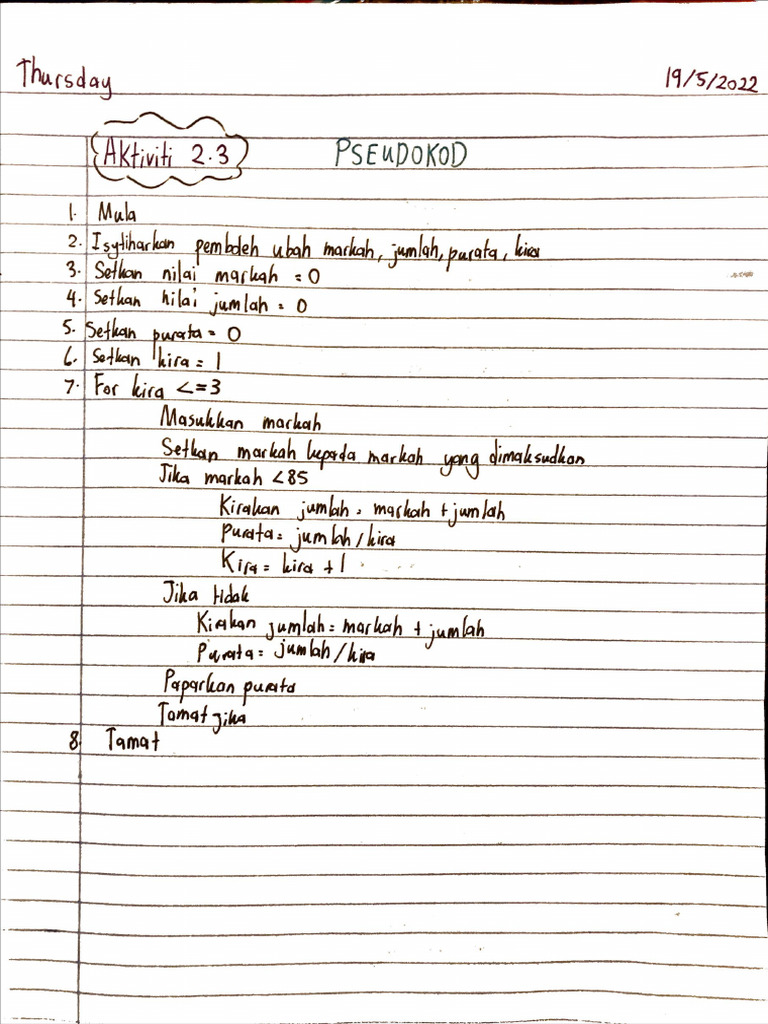 Thursday 19/5/2022
Aktiviti 2.3 PSEUDOKOD
1. Mula
2. Isytiharkan pemboleh ubah markah, jumlah, purata, kira
3. Setkan nilai markah = 0
4. Setkan nilai jumlah = 0
5. Setkan purata = 0
6. Setkan kira = 1
7. For kira <=3
Masukkan markah
Setkan markah kepada markah yang dimaksudkan
Jika markah <85
Kirakan jumlah = markah + jumlah
Purata = jumlah / kira
Kira = kira + 1
Jika tidak
Kirakan jumlah = markah + jumlah
Purata = jumlah / kira
Paparkan purata
Tamat jika
8. Tamat